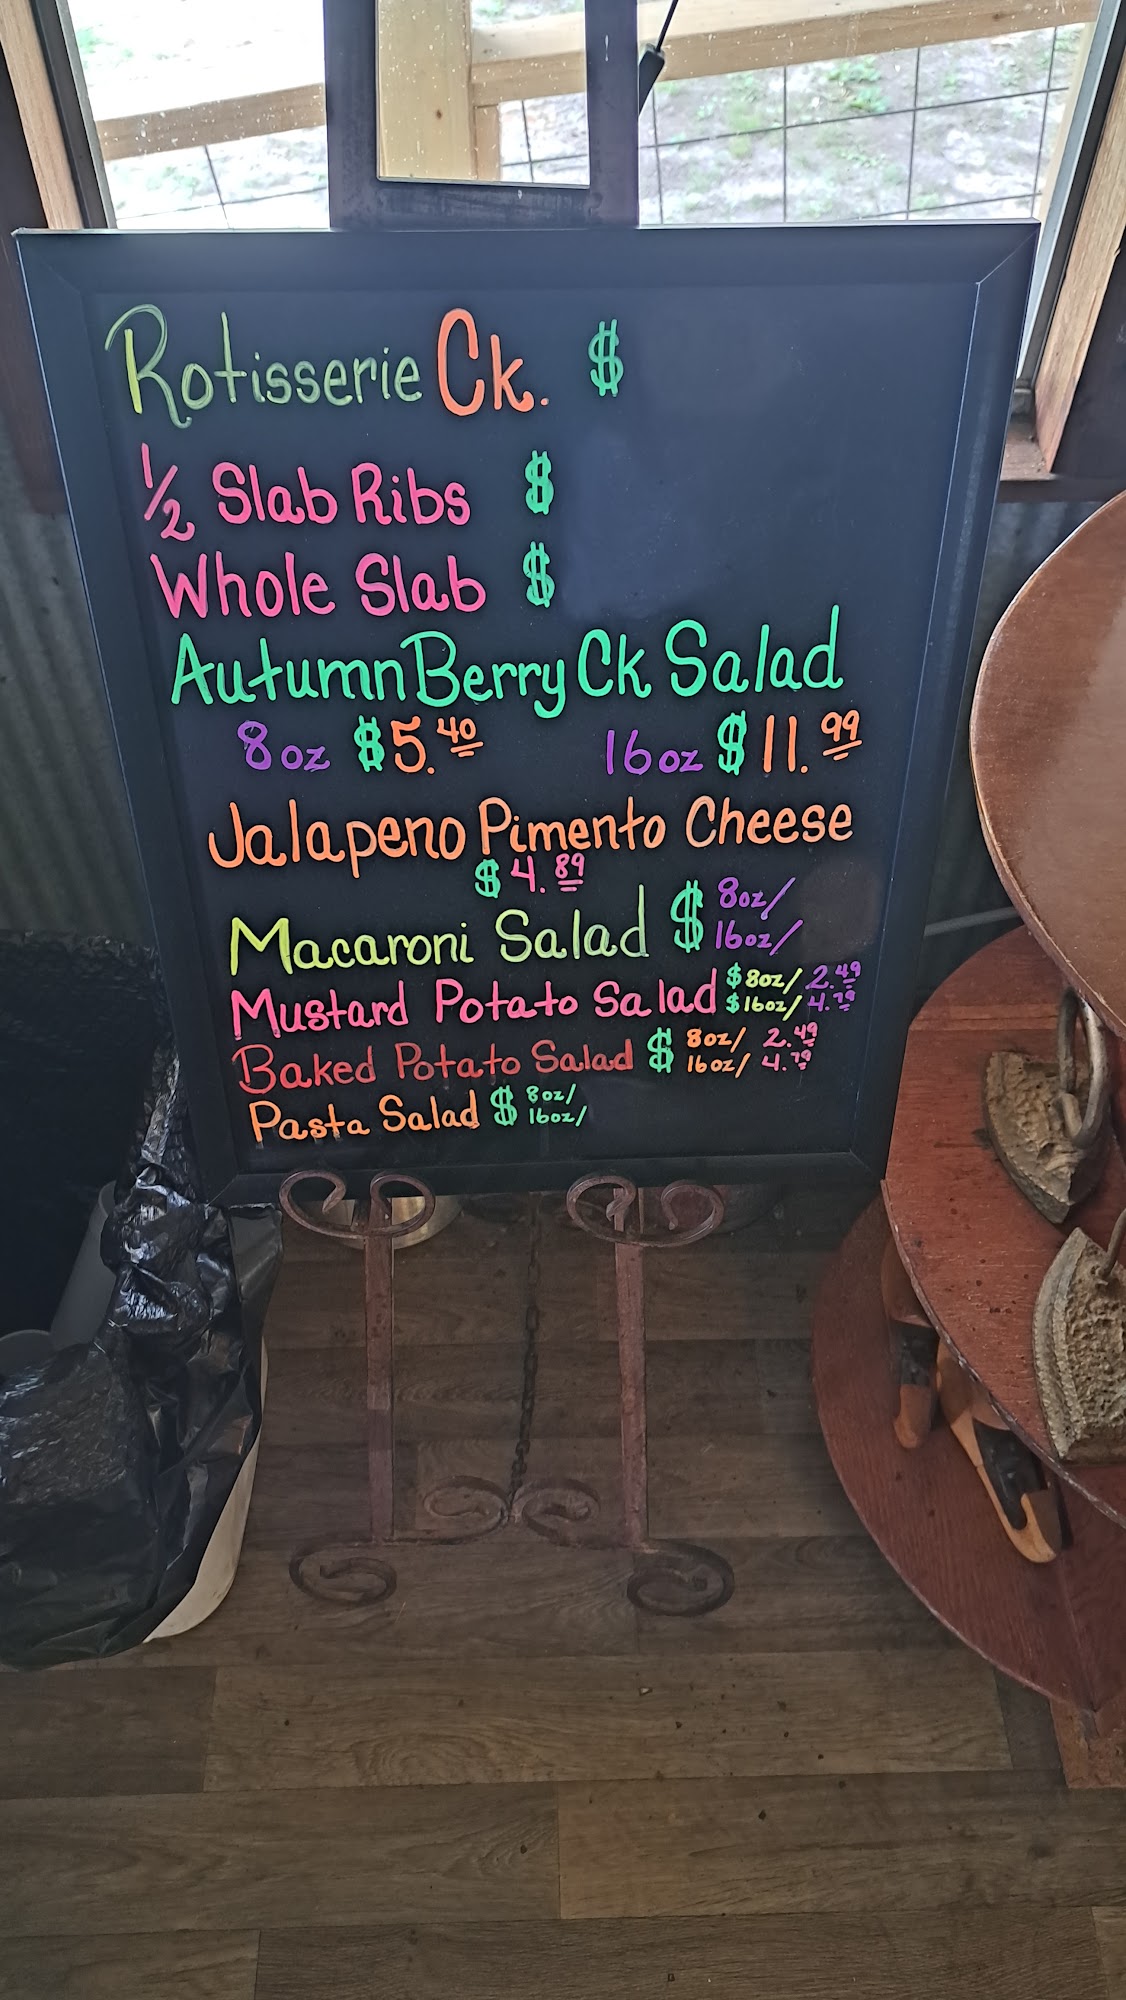 Rotisserie Ck. $
1/2 Slab Ribs $
Whole Slab $
Autumn Berry Ck Salad
8oz $5.40 16oz $11.99
Jalapeno Pimento Cheese
$4.89
Macaroni Salad $ 8oz/
16oz/
Mustard Potato Salad $8oz/ 2.49
$16oz/ 4.79
Baked Potato Salad $ 8oz/ 2.49
16oz/ 4.79
Pasta Salad $ 8oz/
16oz/